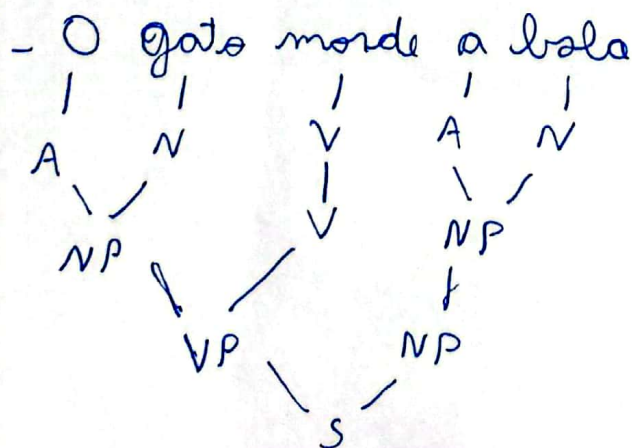 - O gato morde a bola
A N V A N
V
NP NP
VP NP
S